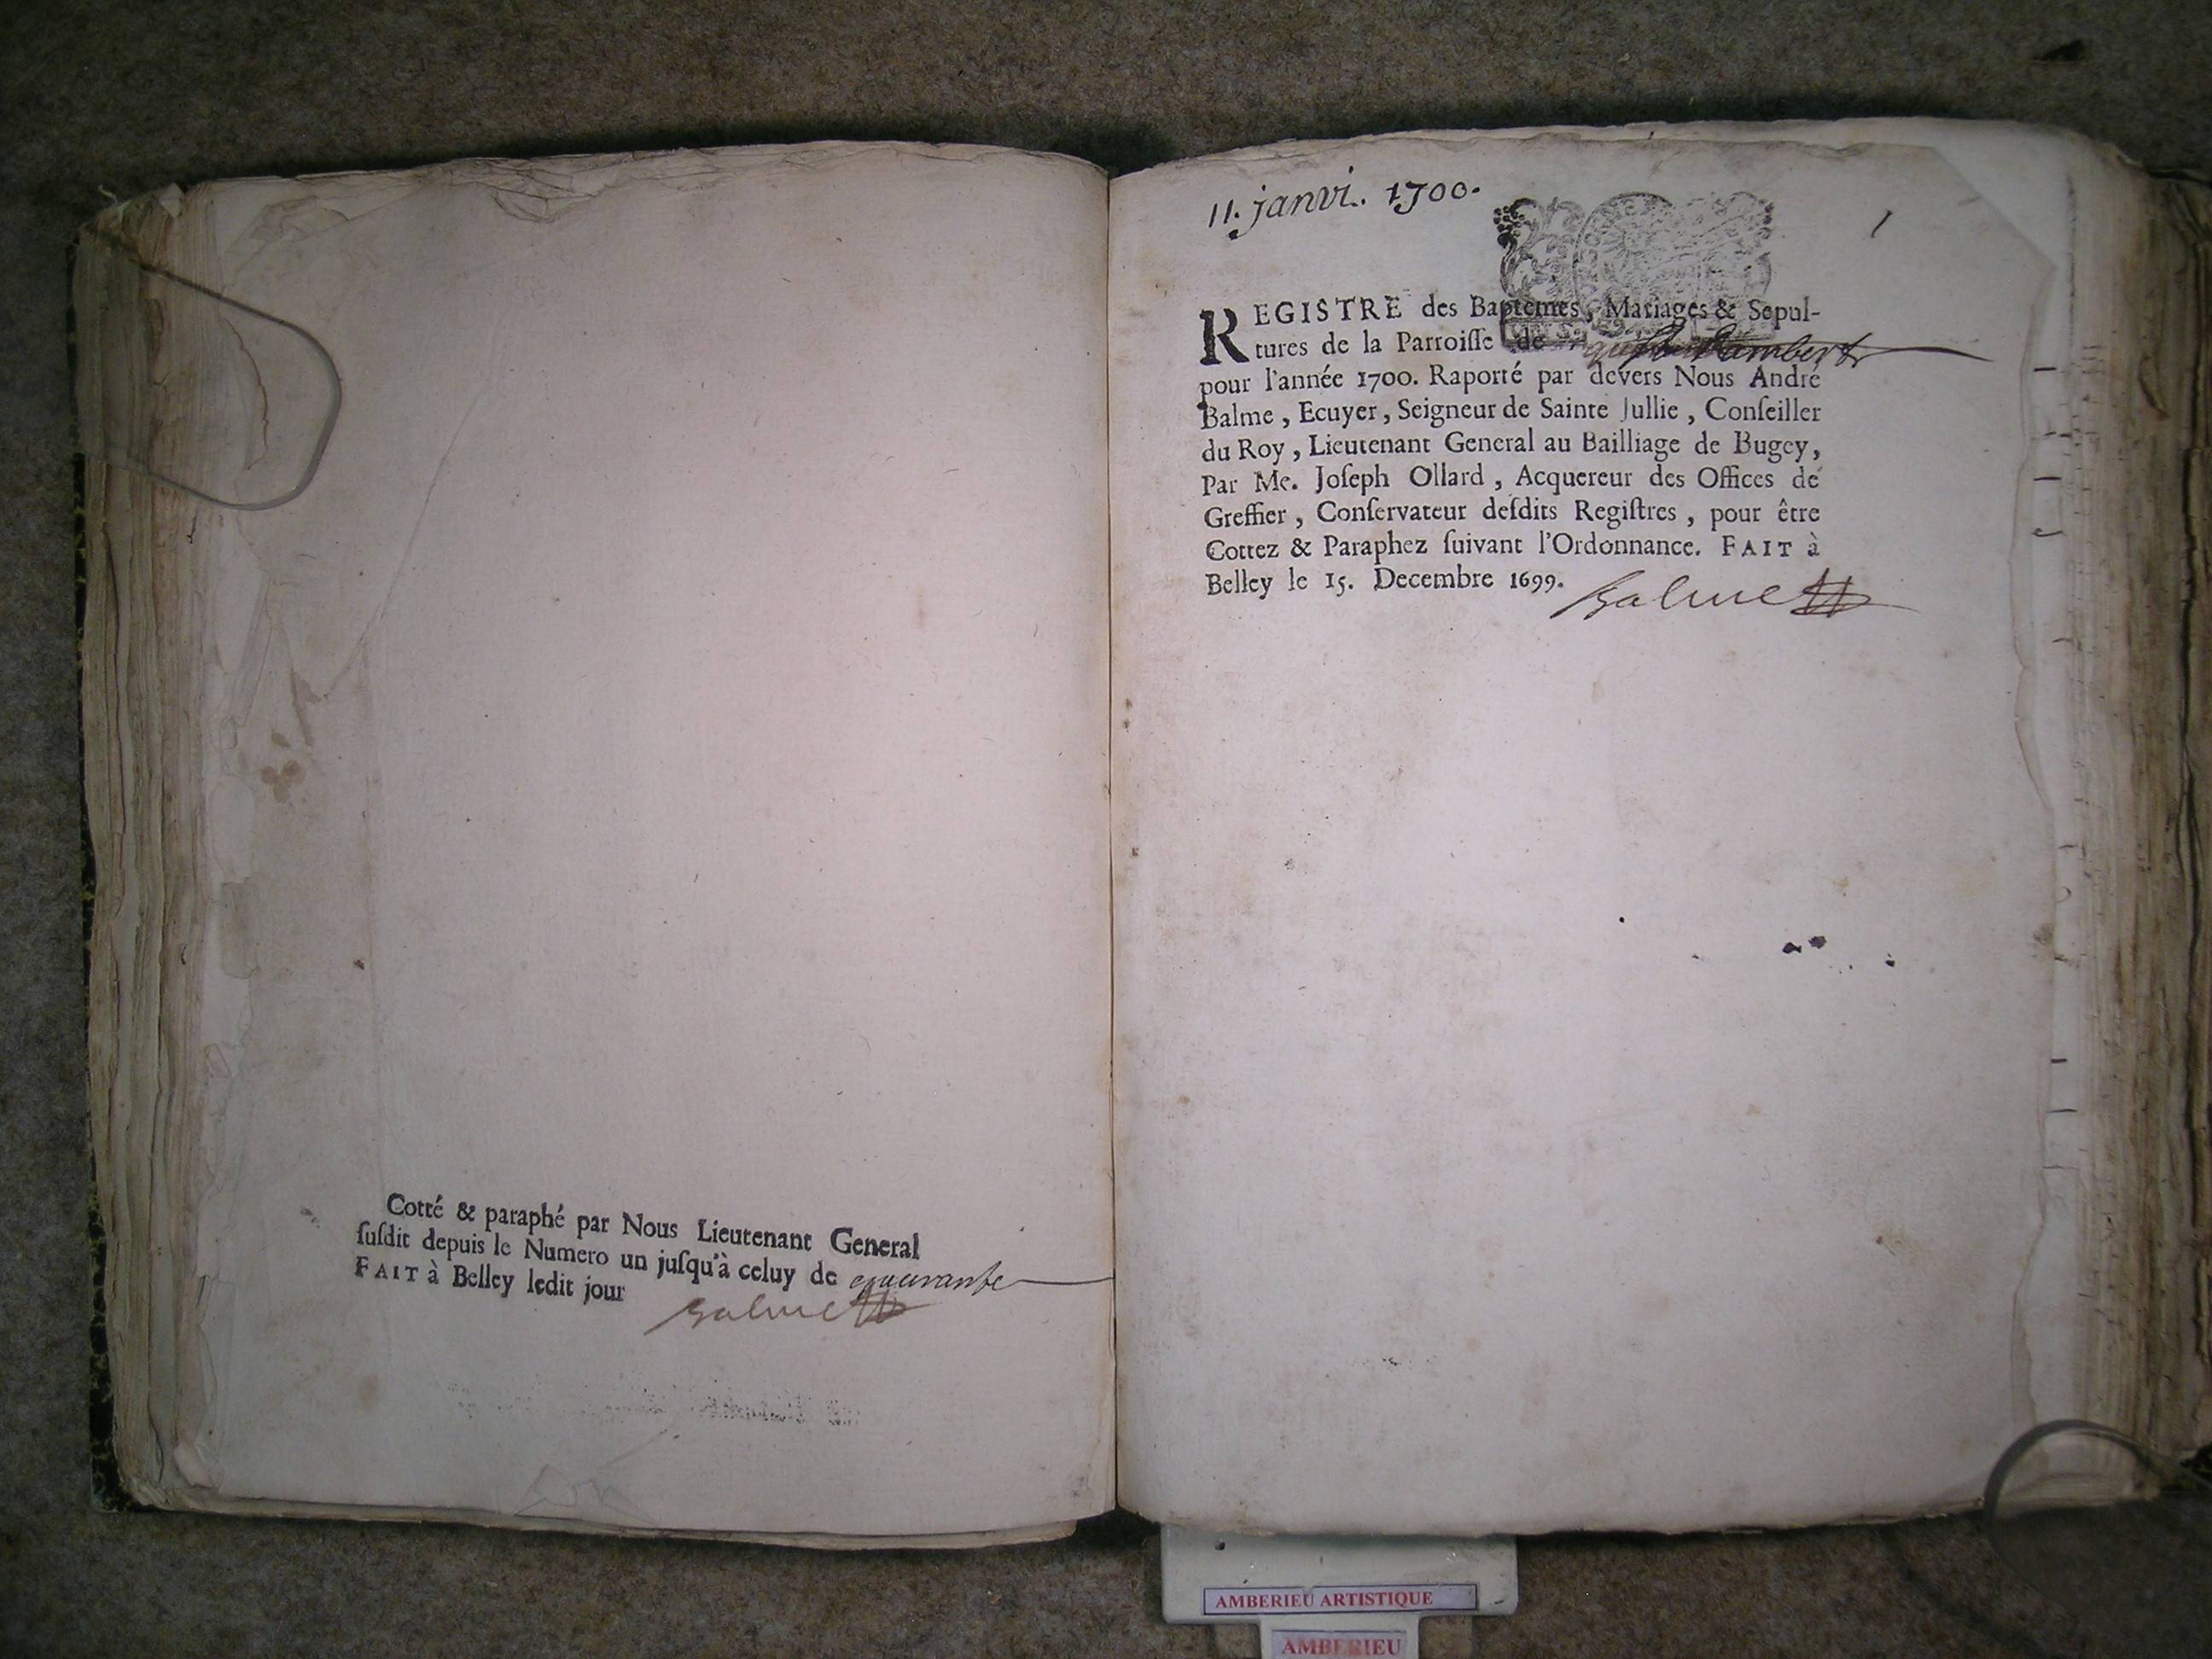 Cotté & paraphé par Nous Lieutenant General
ſuſdit depuis le Numero un juſqu'à celuy de quarante
FAIT à Belley ledit jour
Balme
11. janvi. 1700.
1
REGISTRE des Baptemes, Mariages & Sepul-
tures de la Parroiſſe de St Rambert
pour l'année 1700. Raporté par devers Nous André
Balme, Ecuyer, Seigneur de Sainte Jullie, Conſeiller
du Roy, Lieutenant General au Bailliage de Bugey,
Par Me. Joſeph Ollard, Acquereur des Offices de
Greffier, Conſervateur deſdits Regiſtres, pour être
Cottez & Paraphez ſuivant l'Ordonnance. FAIT à
Belley le 15. Decembre 1699.
Balme
AMBERIEU ARTISTIQUE
AMBERIEU